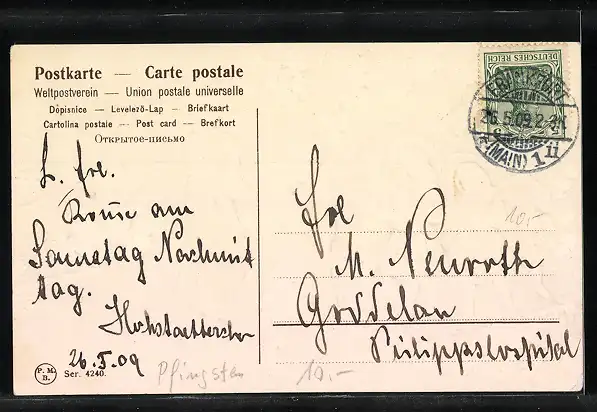 Postkarte — Carte postale
Weltpostverein — Union postale universelle
Dopisnice — Levelező-Lap — Briefkaart
Cartolina postale — Post card — Brefkort
Открытое-письмо
L. Frl.
Komme am
Samstag Nachmit
tag.
26.5.09
P. M. B.
Ser. 4240.
Pfingsten
10,-
DEUTSCHES REICH
26.5.09.2-3N
(MAIN) 1
10,-
Frl
M. Neuroth
Goddelau
Philippshospital